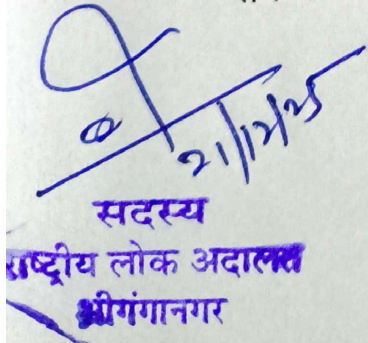 21/12/25
सदस्य
राष्ट्रीय लोक अदालत
श्रीगंगानगर